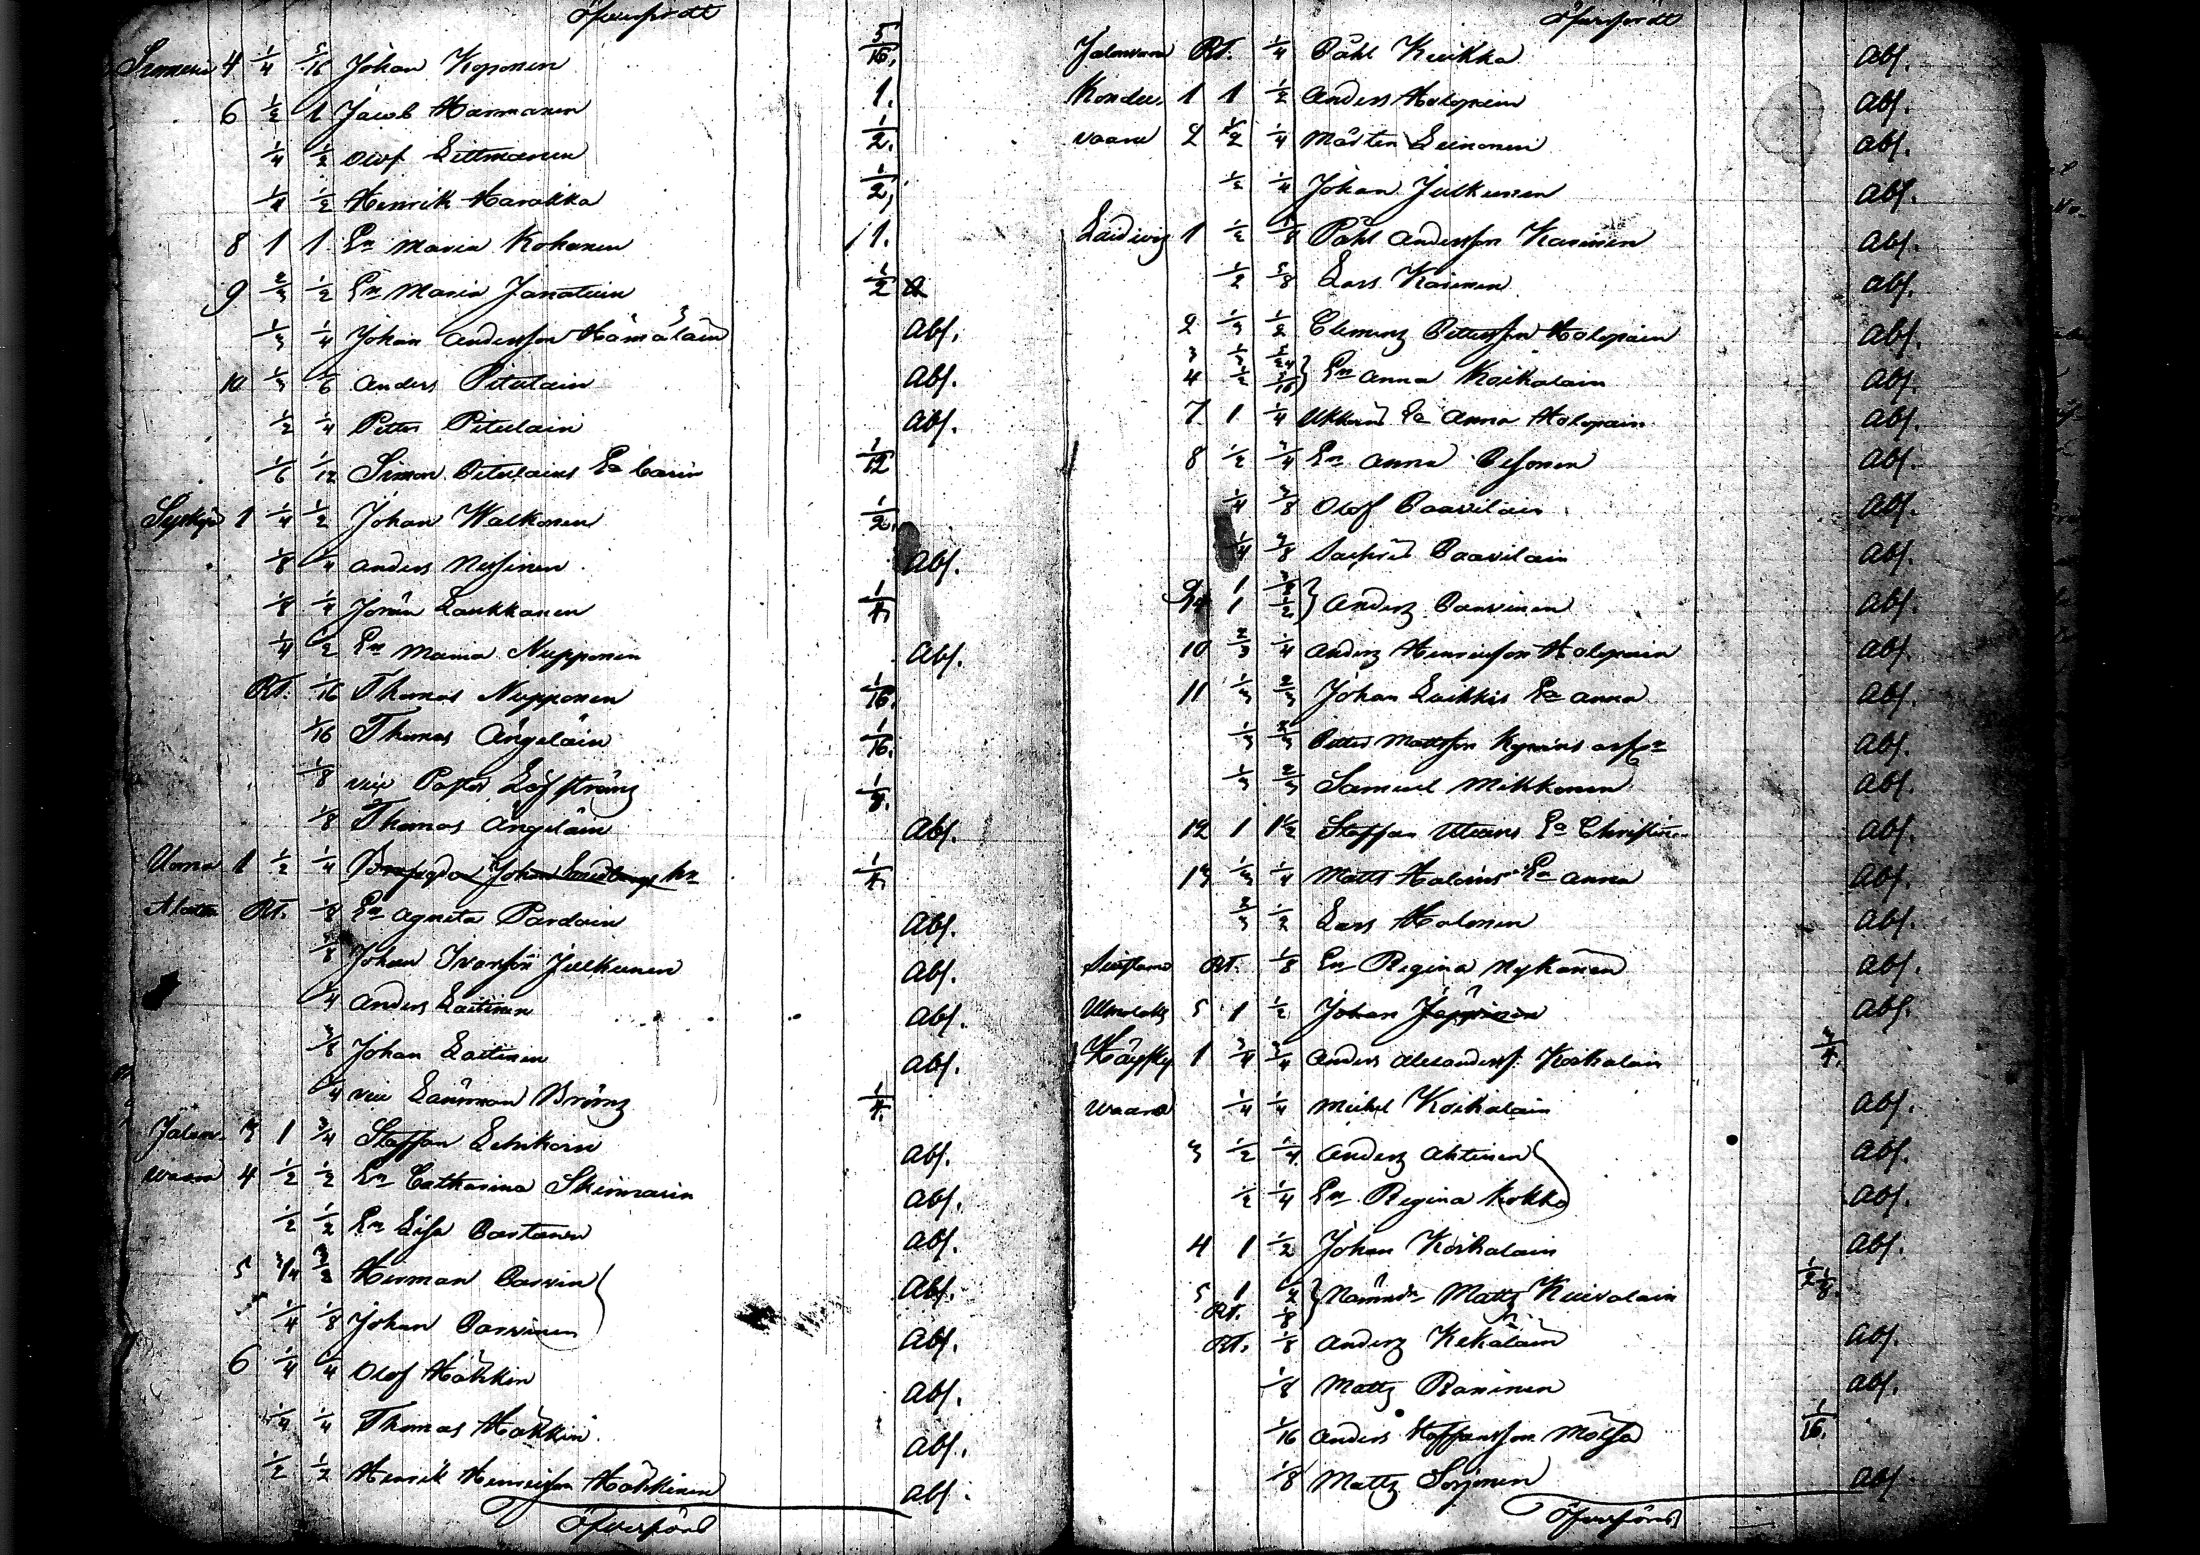 Öfverfördt
4 1/4 5/16 Johan Koponen 5/16.
6 1/2 1 Jacob Harmanen 1.
1/4 1/2 Olof Littmanen 1/2.
1/4 1/2 Henrik Harakka 1/2,
8 1 1 En Maria Kohonen 1.
9 2/3 1/2 En Maria Janatuin 1/2
1/3 1/4 Johan Andersson Hämäläin Abs.
10 1/3 1/6 Anders Pitulain Abs.
1/2 1/4 Petter Pitulain Abs.
1/6 1/12 Simon Pitulains Ea Carin 1/12
Syskyä 1 1/4 1/2 Johan Walkonen 1/2.
1/8 1/4 Anders Nusinen Abs.
1/8 1/4 Jöran Laukkanen 1/4.
1/4 1/2 En Maria Nupponen Abs.
Rt. 1/16 Thomas Nupponen 1/16.
1/16 Thomas Ängeläin 1/16.
1/8 vice Pastor Löfström 1/8.
1/8 Thomas Ängeläin Abs.
Uoma 1 1/2 1/4 Johan 1/4.
Rt. 1/8 En Agneta Pardain Abs.
1/8 Johan Ivarsson Julkunen Abs.
1/4 Anders Laitinen Abs.
3/8 Johan Laitinen Abs.
1/4 vice Länsman Brönz 1/4.
Jalon- 3 1 3/4 Staffan Lehikoin Abs.
waara 4 1/2 1/2 En Catharina Skinnarin Abs.
1/2 1/2 En Lisa Partanen Abs.
5 3/4 Herman Parvin Abs.
1/4 1/8 Johan Parvinen Abs.
6 1/4 1/4 Olof Häkkin Abs.
1/4 1/4 Thomas Häkkin Abs.
1/2 1/2 Henrik Henricsson Häkkinen Abs.
Öfverförd
Öfverfördt
Jalonvara Rt. 1/4 Påhl Kuikka Abs.
Kondu 1 1 1/2 Anders Holopain Abs.
vaara 2 1/2 1/4 Mårten Leinonen Abs.
1/2 1/4 Johan Julkunen Abs.
1 1/2 5/8 Påhl Andersson Karinen Abs.
1/2 5/8 Lars Karinen Abs.
2 1/3 1/2 Clemens Pettersson Holopain Abs.
3 1/3
4 1/2 } En Anna Koikalain Abs.
7 1 1/4 Anna Holopain Abs.
8 1/2 3/4 En Anna Pesonen Abs.
1/4 3/8 Olof Paavilain Abs.
1/4 3/8 Paavilain Abs.
1
1 1/2 } Anderz Parvinen Abs.
10 2/3 1/4 Anderz Henricsson Holopain Abs.
11 1/3 2/3 Johan Laikkis Ea Anna Abs.
1/3 2/3 Petter Mattsson Abs.
1/3 2/3 Samuel Mikkonen Abs.
12 1 1 1/2 Staffan Ea Christin Abs.
13 1/3 1/4 Matts Haloins Ea Anna Abs.
2/3 1/2 Lars Halonen Abs.
Rt. 1/8 En Regina Nykänen Abs.
5 1 1/2 Johan Jäppinen Abs.
Käysky 1 3/4 3/4 Anders Alexanderss. Koikalain 3/4.
waara 1/4 1/4 Michel Koikalain Abs.
3 1/2 1/4 Anderz Ahtinen Abs.
1/2 1/4 En Regina Kokko Abs.
4 1 1/2 Johan Koikalain Abs.
5 1 1/2
Rt. 1/8 } Nämnd. Mattz Kuivalain 1/2 1/8.
Rt. 1/8 Anderz Kekäläin Abs.
1/8 Mattz Raninen Abs.
1/16 Anders Staffansson Mölsä 1/16.
1/8 Mattz Sorjonen Abs
Öfverförd